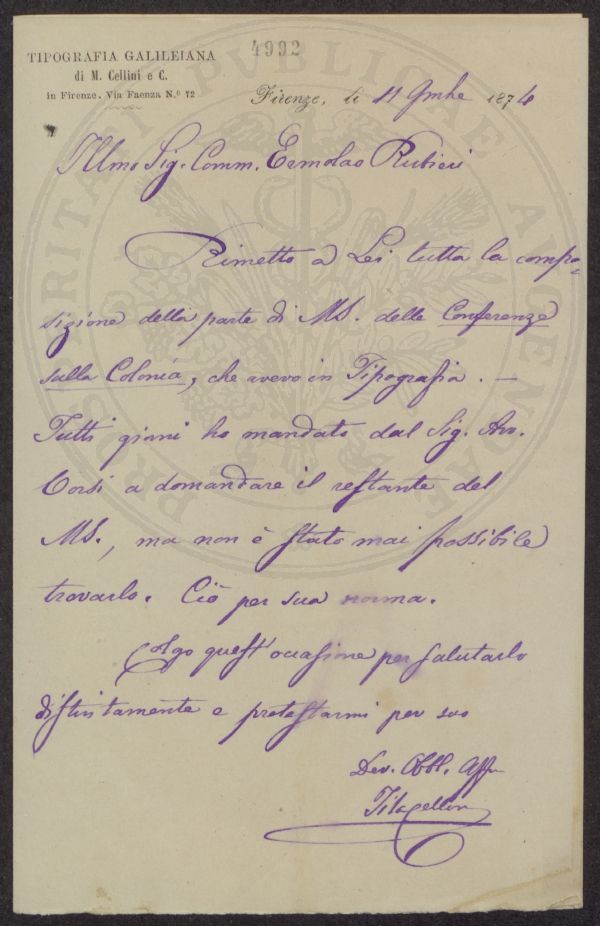 4992
TIPOGRAFIA GALILEIANA
di M. Cellini e C.
in Firenze. Via Faenza N.º 72
Firenze, li 11 9mbe 1874
Illmo Sig. Comm. Ermolao Rubieri
Rimetto a Lei tutta la compo-
sizione della parte di MS. delle Conferenze
sulla Colonía, che avevo in Tipografia. —
Tutti giorni ho mandato dal Sig. Avv.
Corsi a domandare il restante del
MS., ma non è stato mai possibile
trovarlo. Ciò per sua norma.
Colgo quest'occasione per salutarlo
distintamente e protestarmi per suo
Dev. Obbl. Aff
Cellini
PROSPERITATI PVBLICAE AVGENDAE